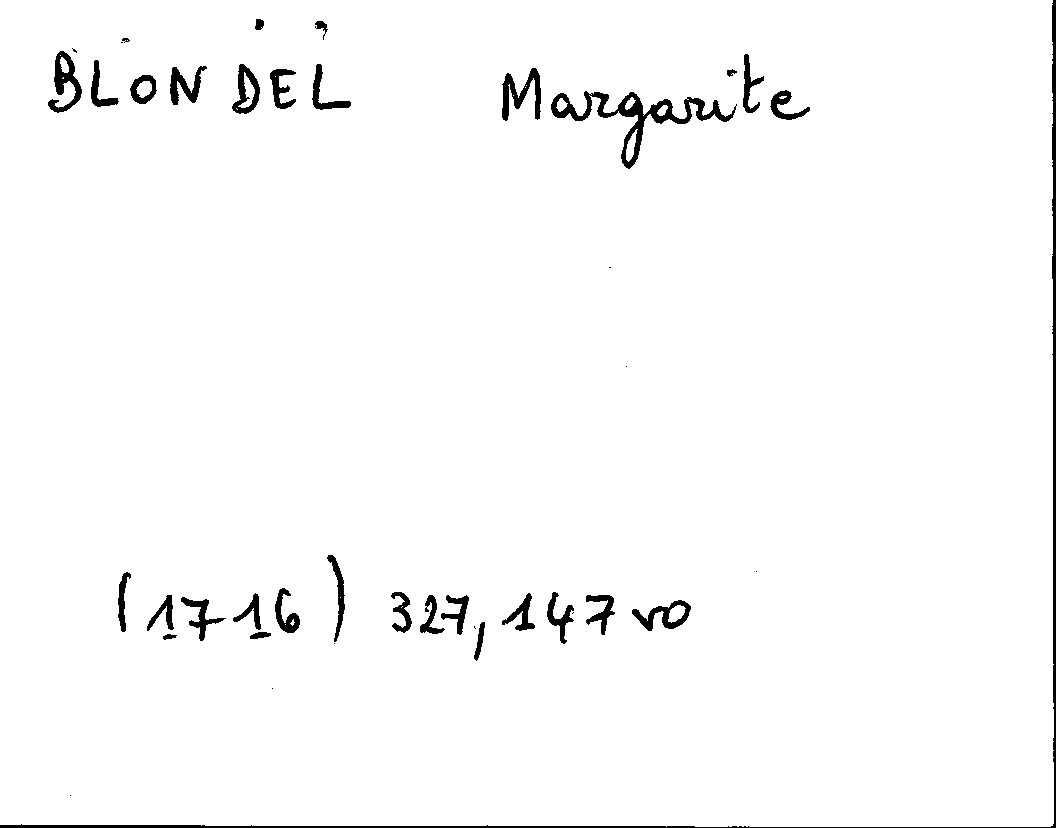 BLONDEL Margarite
(1716) 327, 147 vo